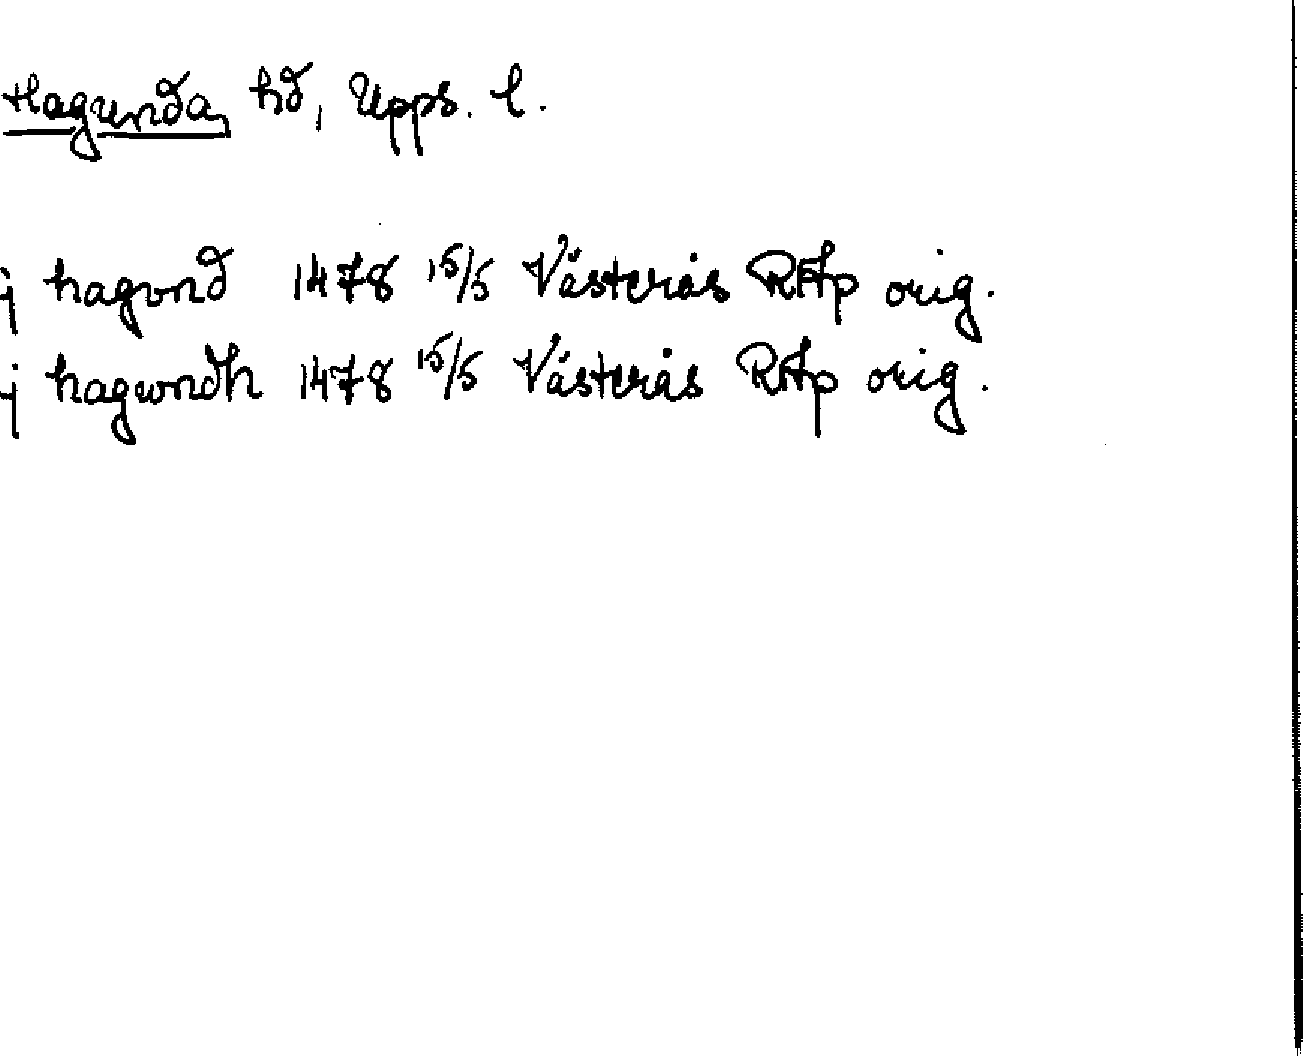 Hagunda hd, Upps. l.
j hagvnd 1478 15/5 Västerås RAp orig.
j hagwndh 1478 15/5 Västerås RAp orig.